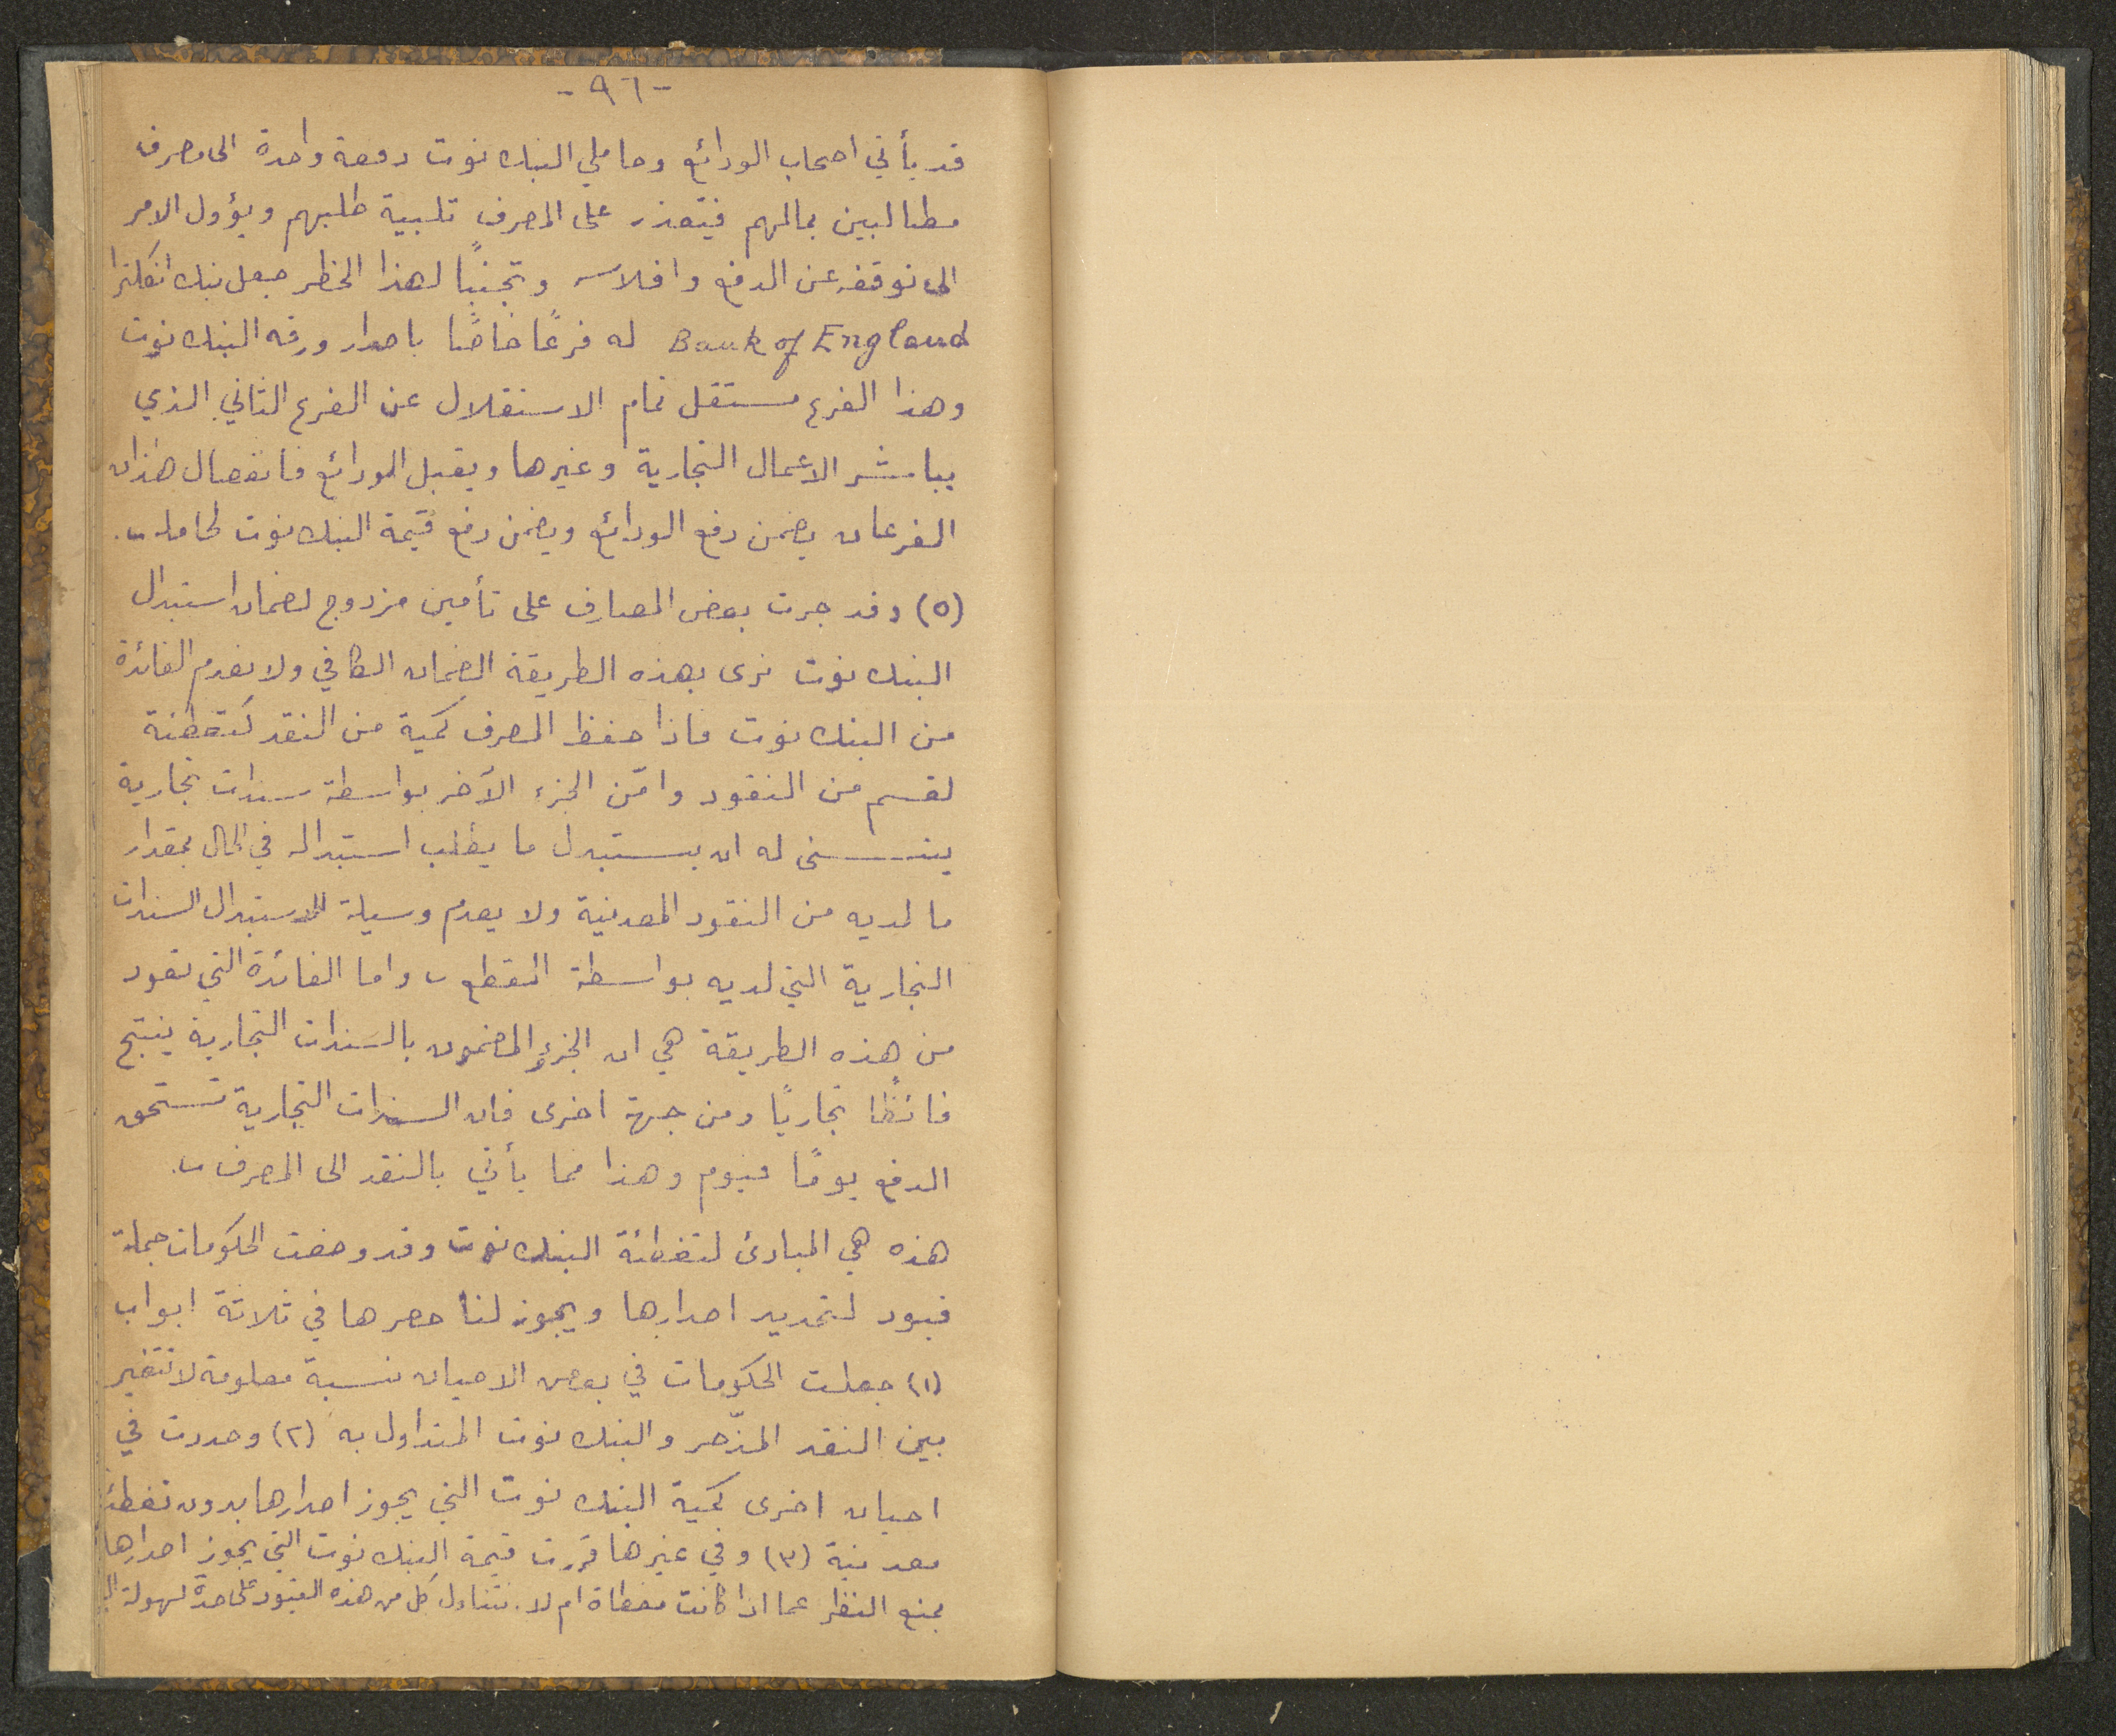 -٩٦-
قد يأتي اصحاب الودائع وحاملي البنك نوت دفعة واحدة الى مصرف
مطالبين بمالهم فيتعذر على المصرف تلبية طلبهم ويؤول الامر
الى توقفه عن الدفع وافلاسه وتجنبًا لهذا الخطر جعل بنك انكلترا
Bank of England له فرعًا خاصًا باصدار ورقه البنك نوت
وهذا الفرع مستقل تمام الاستقلال عن الفرع الثاني الذي
يباشر الاعمال التجارية وغيرها ويقبل الودائع فانفصال هذان
الفرعان يضمن دفع الودائع ويضمن دفع قيمة البنك نوت لحاملـه.
(٥) وقد جرت بعض المصارف على تأمين مزدوج لضمان استبدال
البنك نوت نرى بهذه الطريقة الضمان الكافي ولا نعدم الفائدة
من البنك نوت فاذا حفظ المصرف كمية من النقد كتغطئة
لقسم من النقود وامّن الجزء الآخر بواسطة سندات تجارية
يتسنى له ان يستبدل ما يطلب استبداله في الحال بمقدار
ما لديه من النقود المعدنية ولا يعدم وسيلة للاستبدال السندات
التجارية التي لديه بواسطة القطع واما الفائدة التي تعود
من هذه الطريقة هي ان الجزء المضمون بالسندات التجارية ينتج
فائظًا تجاريًا ومن جهة اخرى فان السندات التجارية تستحق
الدفع يومًا فيوم وهذا مما يأتي بالنقد الى المصرف.
هذه هي المبادئ لتغطئة البنك نوت وقد وضعت الحكومات جملة
قيود لتحديد اصدارها ويجوز لنا حصرها في ثلاثة ابواب
(١) جعلت الحكومات في بعض الاحيان نسبة معلومة لا تتغير
بين النقد المدّخر والبنك نوت المتداول به (٢) وحددت في
احيان اخرى كمية البنك نوت التي يجوز اصدارها بدون تغطئة
معدنية (٣) وفي غيرها قررت قيمة البنك نوت التي يجوز اصدارها
بمنع النظر عما اذا كانت مغطاة ام لا. نتناول كل من هذه القيود على حدة لسهولة